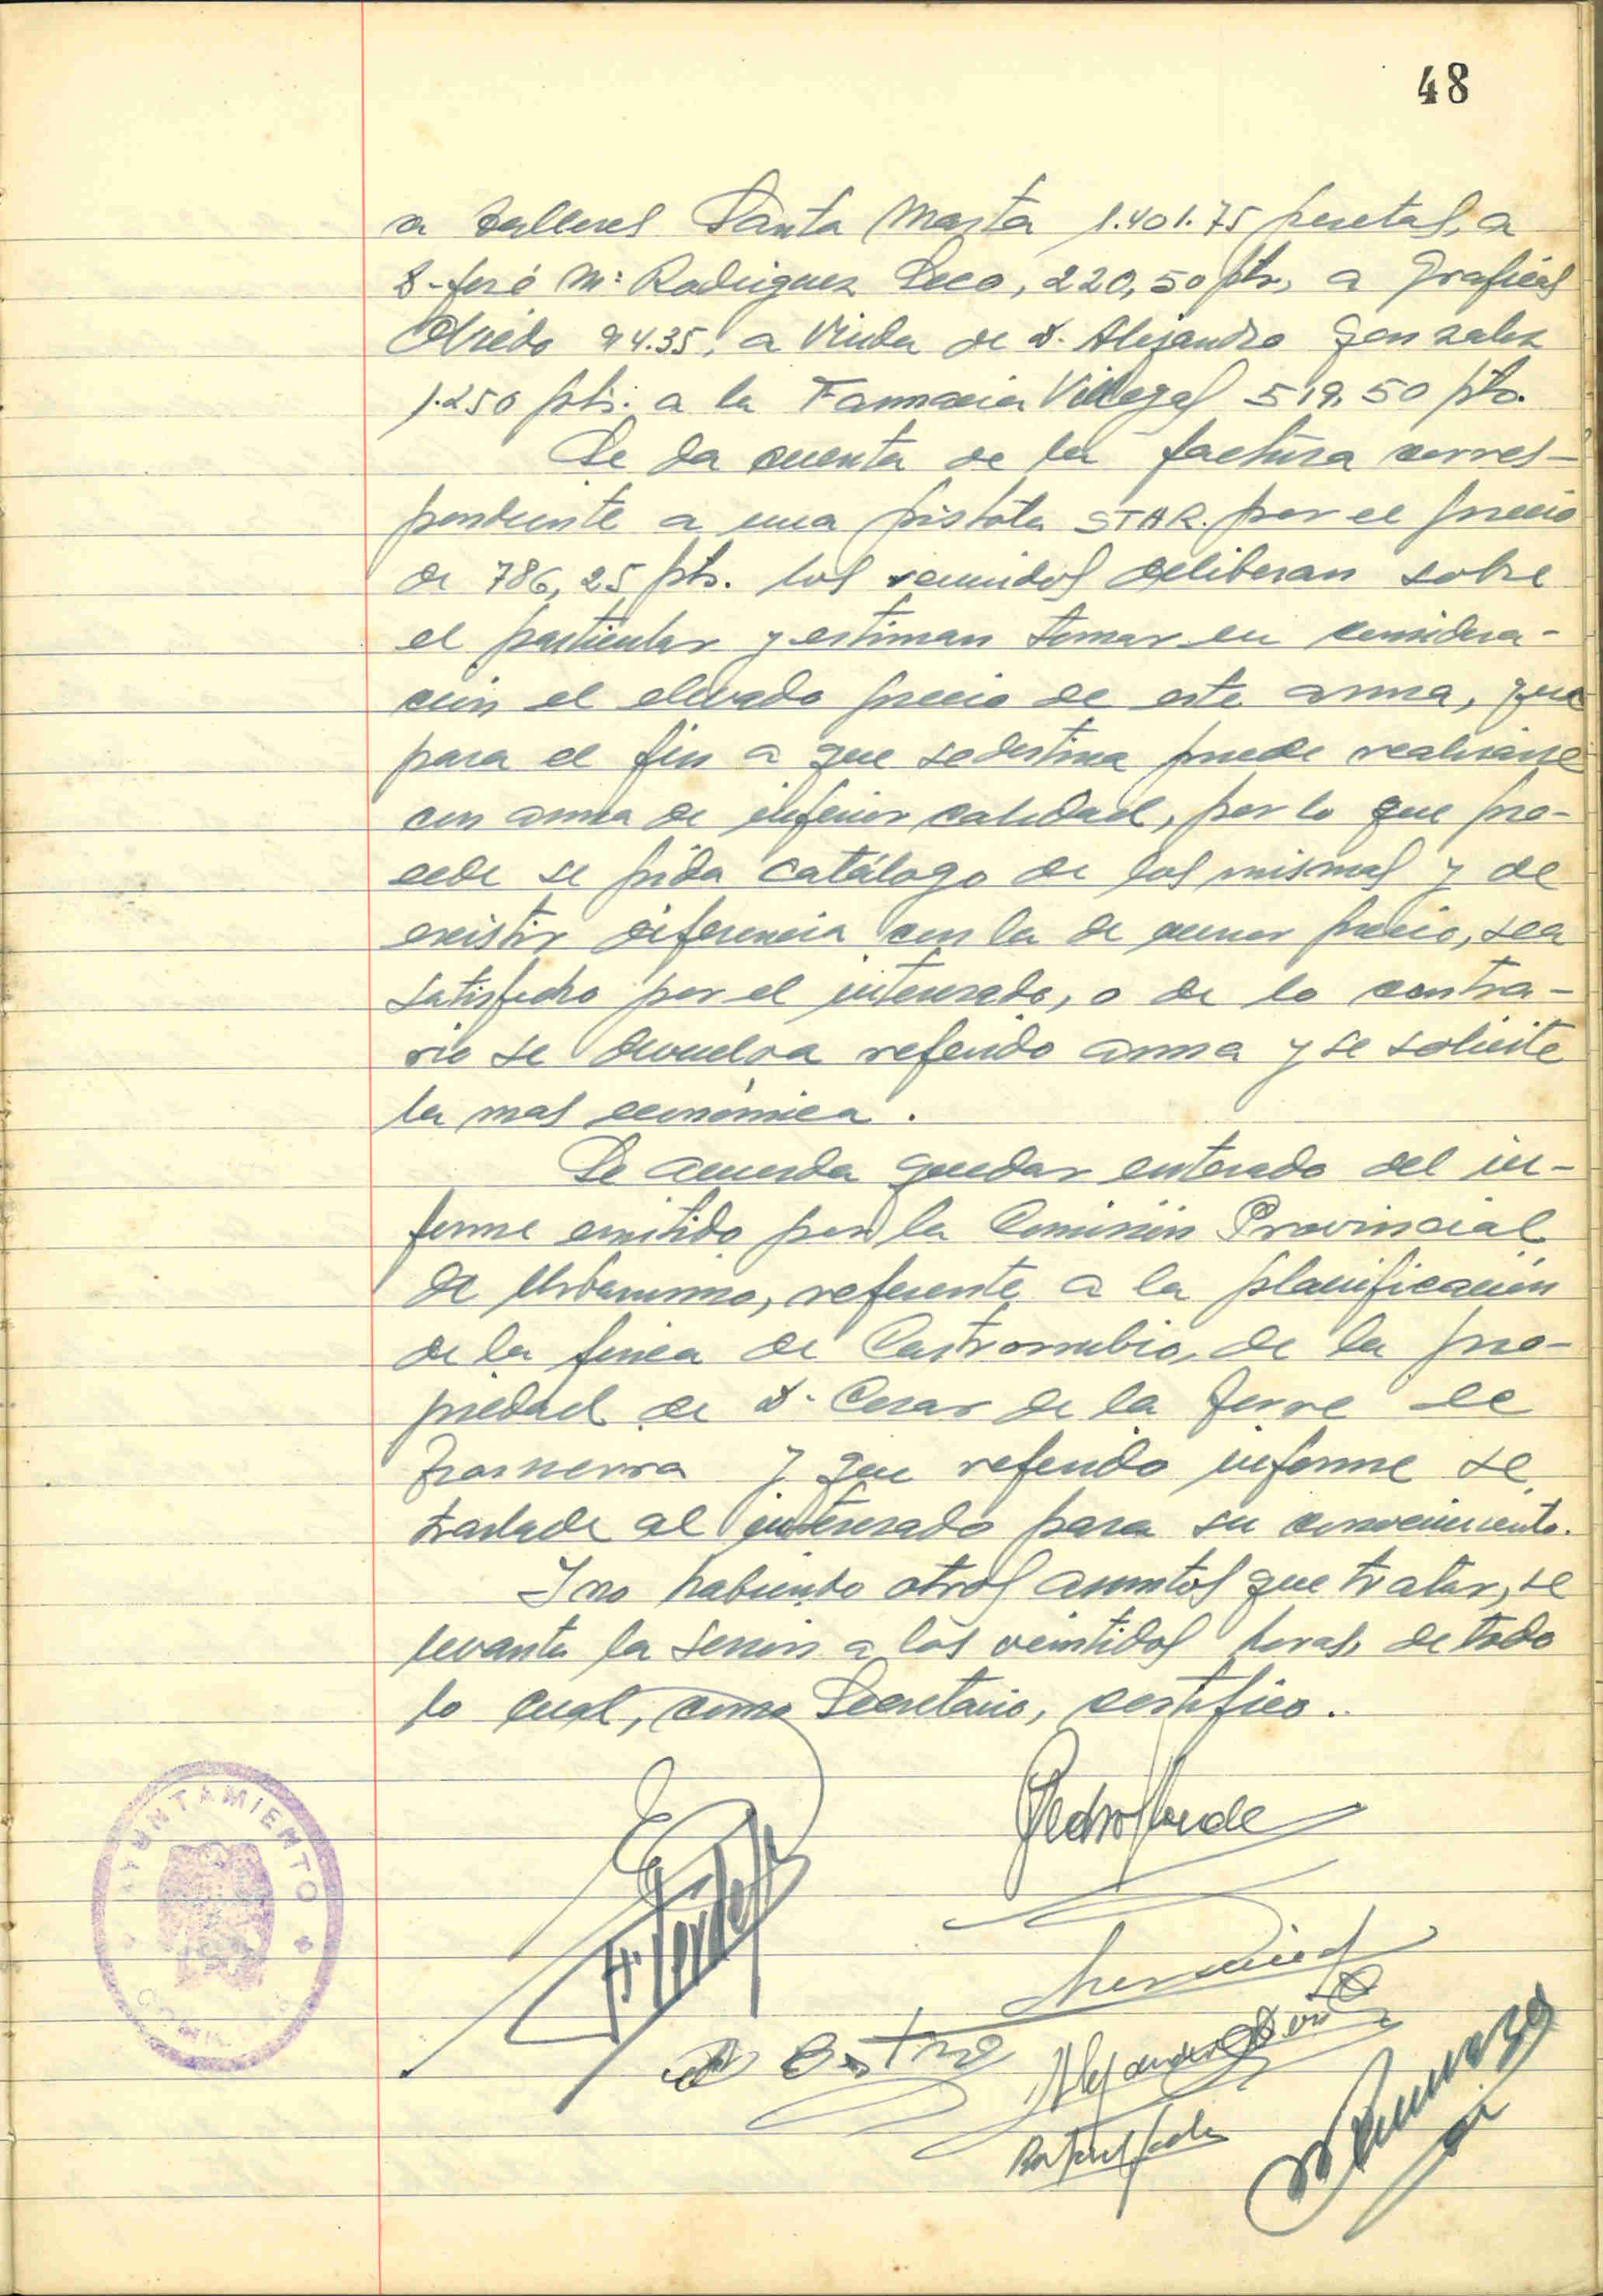 48
a talleres Santa Marta 1.401.75 pesetas, a
D. José Mª Rodriguez Seco, 220,50 pts, a Graficas
Oviedo 94.35, a Viuda de D. Alejandro Gonzalez
1.250 pts. a la Farmacia Villegas 519,50 pts.
Se da cuenta de la factura corres-
pondiente a una pistola STAR. por el precio
de 786,25 pts. los reunidos deliberan sobre
el particular y estiman tomar en considera-
ción el elevado precio de este arma, que
para el fin a que se destina puede realizarse
con arma de inferior calidad, por lo que pro-
cede se pida catálogo de las mismas y de
existir diferencia con la de menor precio, sea
satisfecho por el interesado, o de lo contra-
rio se devuelva referido arma y se solicite
la mas económica.
Se acuerda quedar enterado del in-
forme emitido por la Comisión Provincial
de Urbanismo, referente a la planificación
de la finca de Castrorrubio, de la pro-
piedad de D. Cesar de la Torre de
y que referido informe se
traslade al interesado para su conocimiento.
Y no habiendo otros asuntos que tratar, se
levanta la sesion a las veintidos horas, de todo
lo cual, como Secretario, certifico.
AYUNTAMIENTO
Pedro